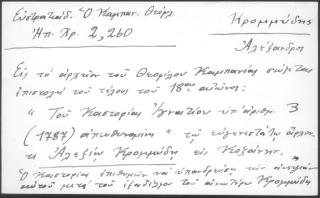 Ευστρατιάδ. Ὁ Καμπαν. Θεόφιλ.
Ἠπ. Χρ. 2, 260
Κρομμύδης
Ἀλέξανδρος
Εἰς τὸ ἀρχεῖον τοῦ Θεοφίλου Καμπανίας σώζεται
ἐπιστολὴ τοῦ τέλους τοῦ 18ου αἰῶνος:
" Τοῦ Καστορίας Ἰγνατίου ὑπ' ἀριθμ. 3
(1787) ἀπευθυνομένη " τῷ εὐγενεστάτῳ ἄρχον-
τι Ἀλεξίῳ Κρομμύδῃ εἰς Κοζάνην.
Ὁ Καστορίας ἐπιθυμεῖ νὰ ὑπανδρεύσῃ τὴν ἀνεψιὰν
αὐτοῦ μετὰ τοῦ ἐξαδέλφου τοῦ ἀνωτέρω Κρομμύδη "